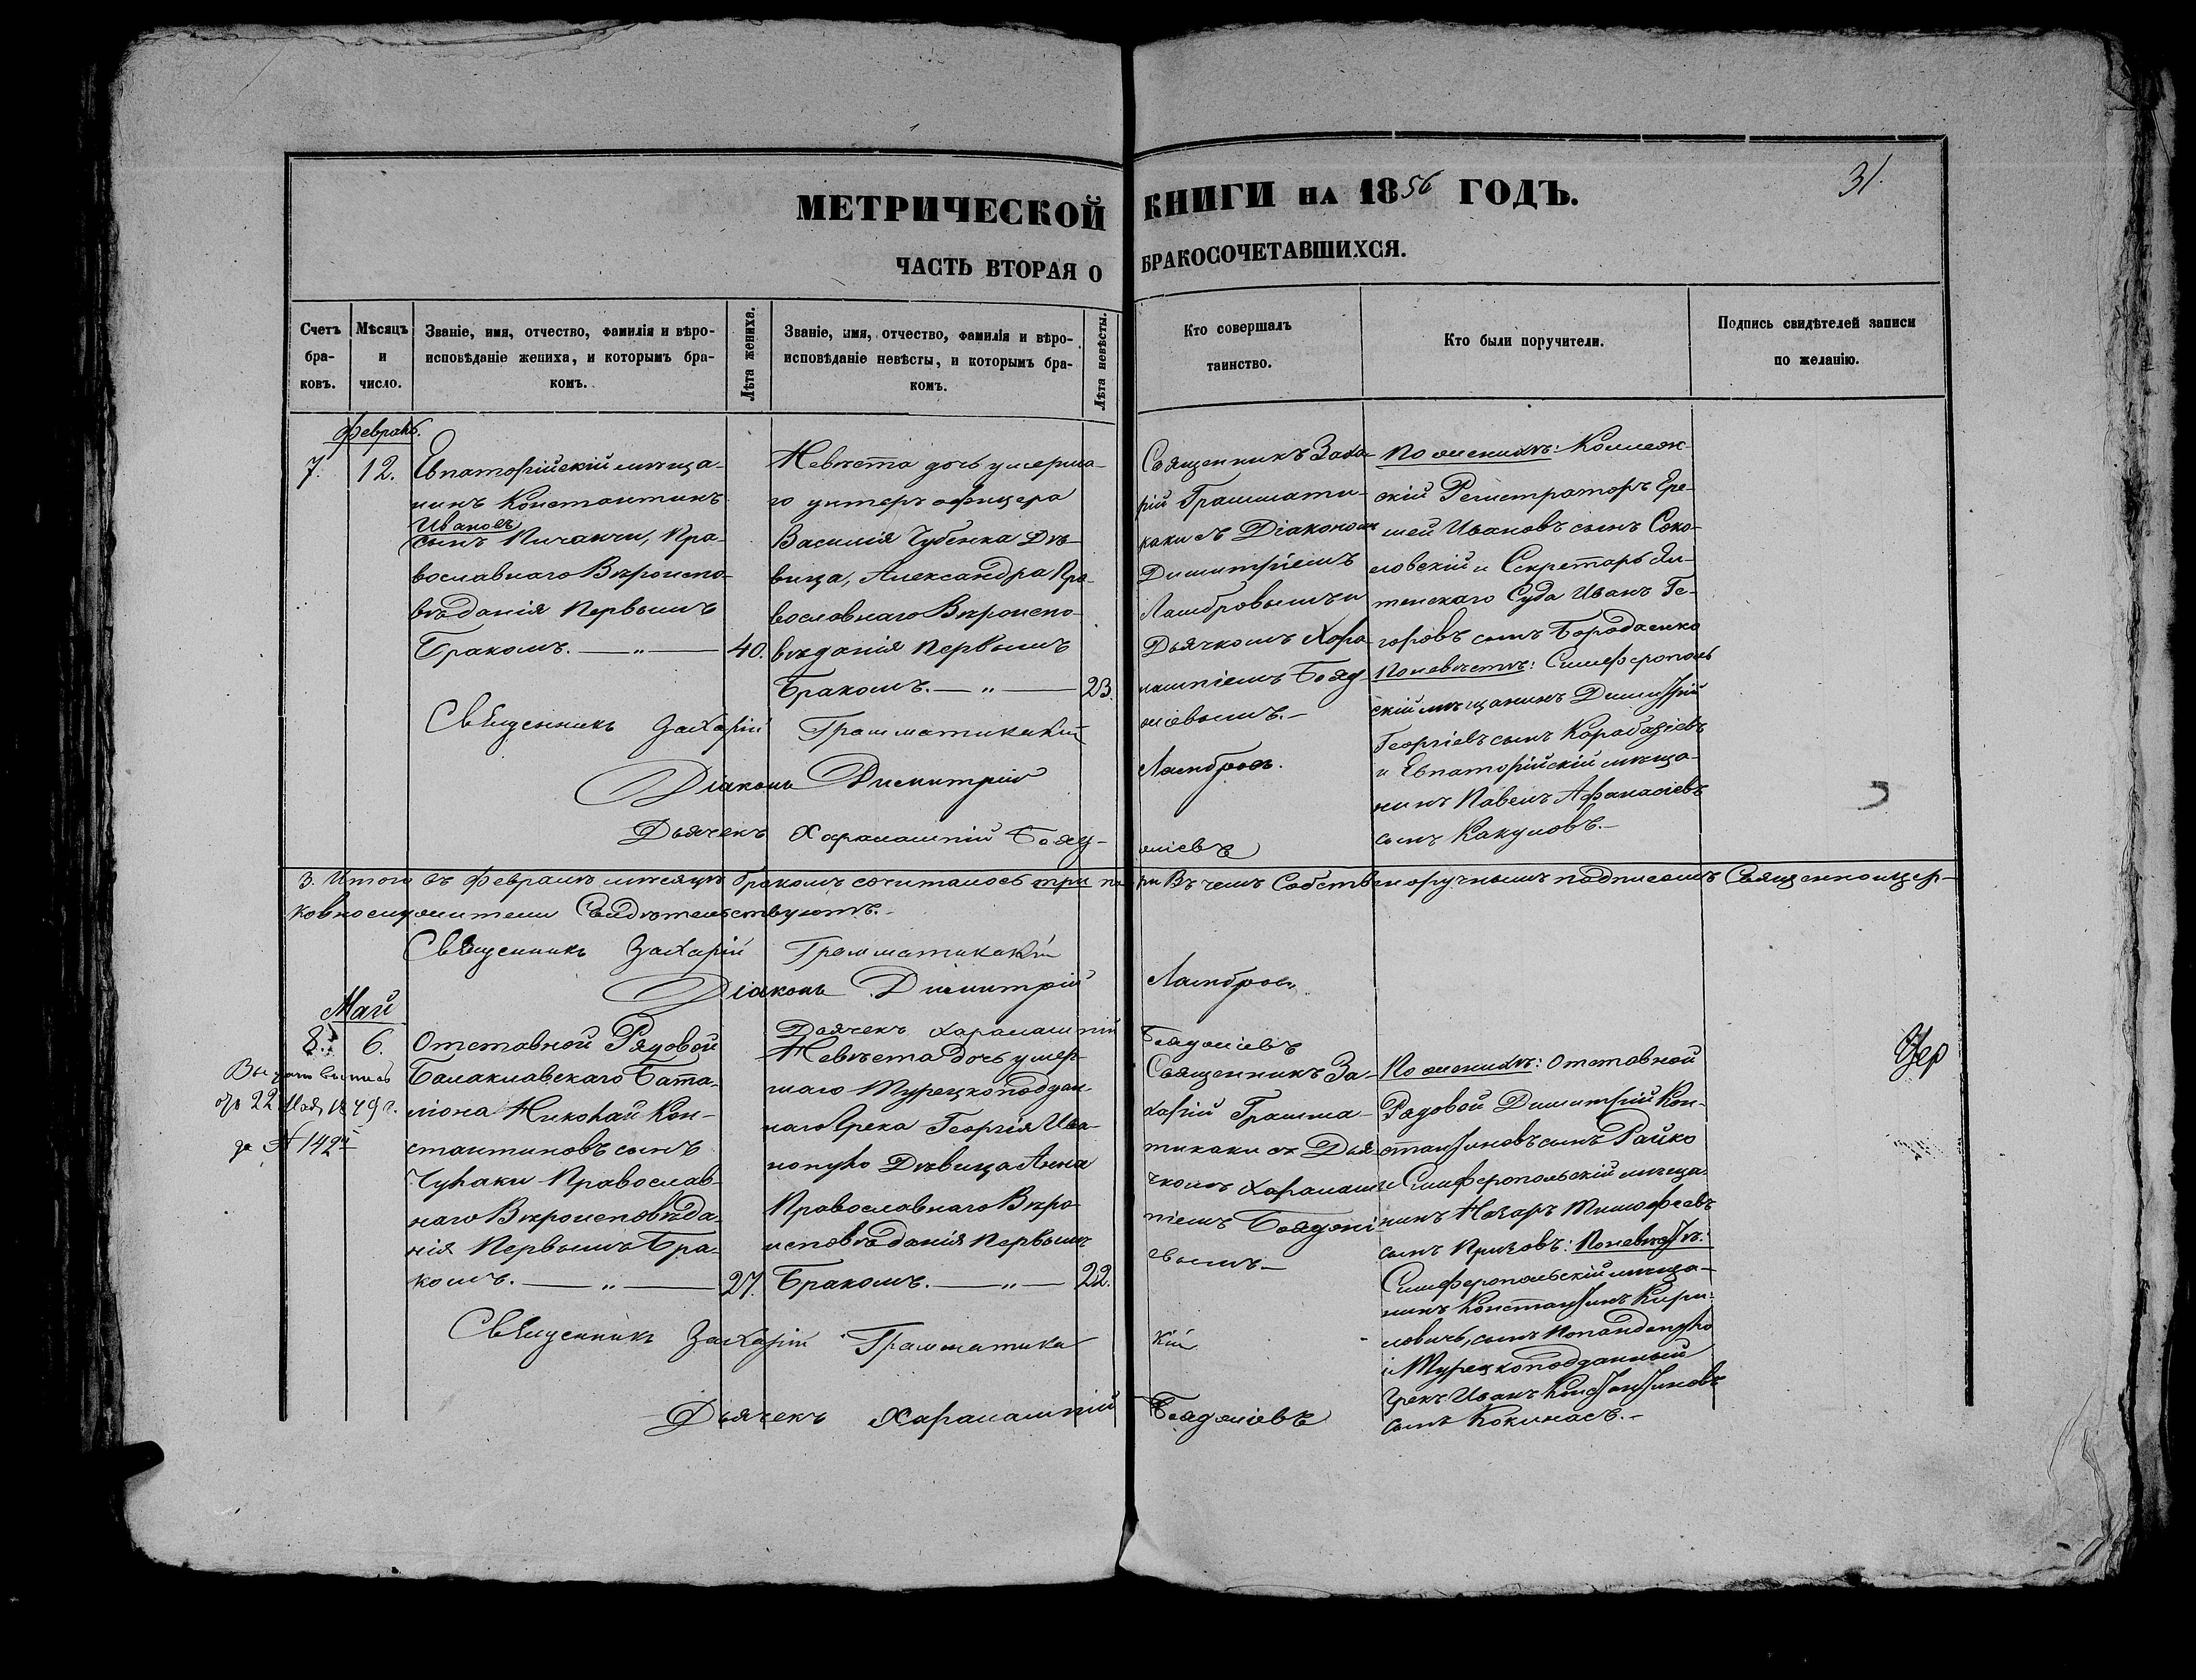 МЕТРИЧЕСКОЙ КНИГИ НА 1856 ГОДЪ.
31.
ЧАСТЬ ВТОРАЯ О БРАКОСОЧЕТАВШИХСЯ.
Счетъ
бра-
ковъ.
Мѣсяцъ
и
число.
Званіе, имя, отчество, фамилія и вѣро-
исповѣданіе жениха, и которымъ бра-
комъ.
Лѣта жениха.
Званіе, имя, отчество, фамилія и вѣро-
исповѣданіе невѣсты, и которымъ бра-
комъ.
Лѣта невѣсты.
Кто совершалъ
таинство.
Кто были поручители.
Подпись свидѣтелей записи
по желанію.
Февраль.
7.
12.
Евпаторійскій мѣща-
нинъ Константинъ
Ивановъ
сынъ Пичакчи, Пра-
вославнаго Вѣроиспо-
вѣданія Первымъ
Бракомъ. — „ —
40.
Невѣста дочь умерша-
го унтеръ офицера
Василія Чубенка Дѣ-
вица, Александра Пра-
вославнаго Вѣроиспо-
вѣданія Первымъ
Бракомъ. — „ —
23.
Священникъ Заха-
рій Граммати-
каки съ Діакономъ
Димитріемъ
Ламбровымъ и
Дьячкомъ Хара-
лампіемъ Бояд-
жіевымъ.-
По женихѣ: Коллеж-
скій Регистраторъ Ере-
мей Ивановъ сынъ Соко-
ловскій и Секретарь Ял-
тенскаго Суда Иванъ
горовъ сынъ Бородаенко
По невѣстѣ: Симферополь
скій мѣщанинъ Димитрій
Георгіевъ сынъ Карабаджіевъ
и Евпаторійскій мѣща-
нинъ Павелъ Афанасіевъ
сынъ Какуловъ.-
Священникъ Захарій Грамматикакій
Діаконъ Димитрій Ламбровъ.
Дьячекъ Харалампій Бояд-
жіевъ
3. Итого въ Февралѣ мѣсяцѣ бракомъ сочиталось три пары Въ чемъ Собственоручнымъ подписомъ Священноцер-
ковнослужители Свидѣтельствуютъ.-
Священникъ Захарій Грамматикакій
Діаконъ Димитрій Ламбровъ
Дьячекъ Харалампій Бояджіевъ
Май
8.
6.
Выдана выпись
22 Мая
за № 142
Отставной Рядовой
Балаклавскаго Бата-
ліона Николай Кон-
стантиновъ сынъ
Чулаки Православ-
наго Вѣроисповѣда-
нія Первымъ Бра-
комъ. — „ —
27.
Невѣста дочь умер-
шаго Турецкоподдан-
наго Грека Георгія Ива-
нопуло Дѣвица Анна
Православнаго Вѣро-
исповѣданія Первымъ
Бракомъ. — „ —
22.
Священникъ За-
харій Грамма-
тикаки съ Дья-
чкомъ Харалам-
піемъ Бояджі-
евымъ.-
По женихѣ: Отставной
Рядовой Димитрій Кон-
стантиновъ сынъ Райко
и Симферопольскій мѣща-
нинъ Назаръ Тимофеевъ
сынъ Призовъ: По невѣстѣ:
Симферопольскій мѣща-
нинъ Константинъ Кири-
ловичъ, сынъ Попандопуло
и Турецкоподданный
Грекъ Иванъ Константиновъ
сынъ Кокинасъ.-
Священникъ Захарій Грамматика
кій
Дьячекъ Харалампій Бояджіевъ